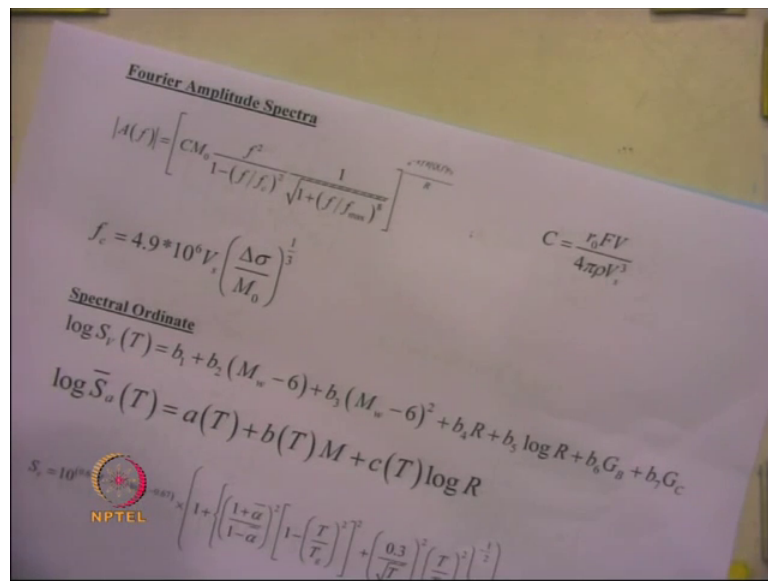 Fourier Amplitude Spectra
|A(f)| = [CM₀ f²/(1−(f/f_c)²) 1/√(1+(f/f_max)⁸)] / R
f_c = 4.9*10⁶V_s(Δσ/M₀)^(1/3)
C = r₀FV/(4πρV_s³)
Spectral Ordinate
log S_v(T) = b₁ + b₂(M_w −6) + b₃(M_w −6)² + b₄R + b₅ log R + b₆G_B + b₇G_C
log S̅_a(T) = a(T) + b(T)M + c(T)log R
= 10 × (1+{[((1+α̅)/(1−α̅))²[1−(T/T)²]² + (0.3/√T)²(T/
NPTEL